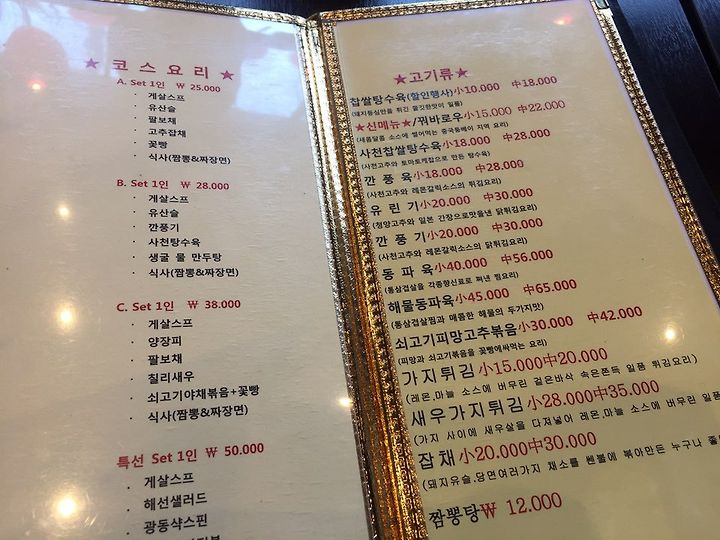 ★ 코스요리 ★
A. Set 1인 ₩ 25.000
· 게살스프
· 유산슬
· 팔보채
· 고추잡채
· 꽃빵
· 식사(짬뽕&짜장면)
B. Set 1인 ₩ 28.000
· 게살스프
· 유산슬
· 깐풍기
· 사천탕수육
· 생굴 물 만두탕
· 식사(짬뽕&짜장면)
C. Set 1인 ₩ 38.000
· 게살스프
· 양장피
· 팔보채
· 칠리새우
· 쇠고기야채볶음+꽃빵
· 식사(짬뽕&짜장면)
특선 Set 1인 ₩ 50.000
· 게살스프
· 해선샐러드
· 광동샥스핀
★고기류★
찹쌀탕수육(할인행사)小10.000 中18.000
(돼지등심만을 튀긴 쫄깃한맛이 일품)
★신메뉴★/꿔바로우小15.000 中22.000
(새콤달콤 소스에 썰어먹는 중국동베이 지역 요리)
사천찹쌀탕수육小18.000 中28.000
(사천고추와 토마토케찹으로 만든 탕수육)
깐 풍 육小18.000 中28.000
(사천고추와 레몬갈릭소스의 튀김요리)
유 린 기小20.000 中30.000
(청양고추와 일본 간장으로맛을낸 닭튀김요리)
깐 풍 기小20.000 中30.000
(사천고추와 레몬갈릭소스의 닭튀김요리)
동 파 육小40.000 中56.000
(통삼겹살을 각종향신료로 쪄낸 찜요리)
해물동파육小45.000 中65.000
(통삼겹살찜과 매콤한 해물의 두가지맛)
쇠고기피망고추볶음小30.000 中42.000
(피망과 쇠고기볶음을 꽃빵에싸먹는 요리)
가지튀김小15.000中20.000
(레몬,마늘 소스에 버무린 겉은바삭 속은쫀득 일품 튀김요리)
새우가지튀김小28.000中35.000
(가지 사이에 새우살을 다져넣어 레몬,마늘 소스에 버무린 일품
잡채小20.000中30.000
(돼지유슬,당면여러가지 채소를 쎈불에 볶아만든 누구나
짬뽕탕₩ 12.000